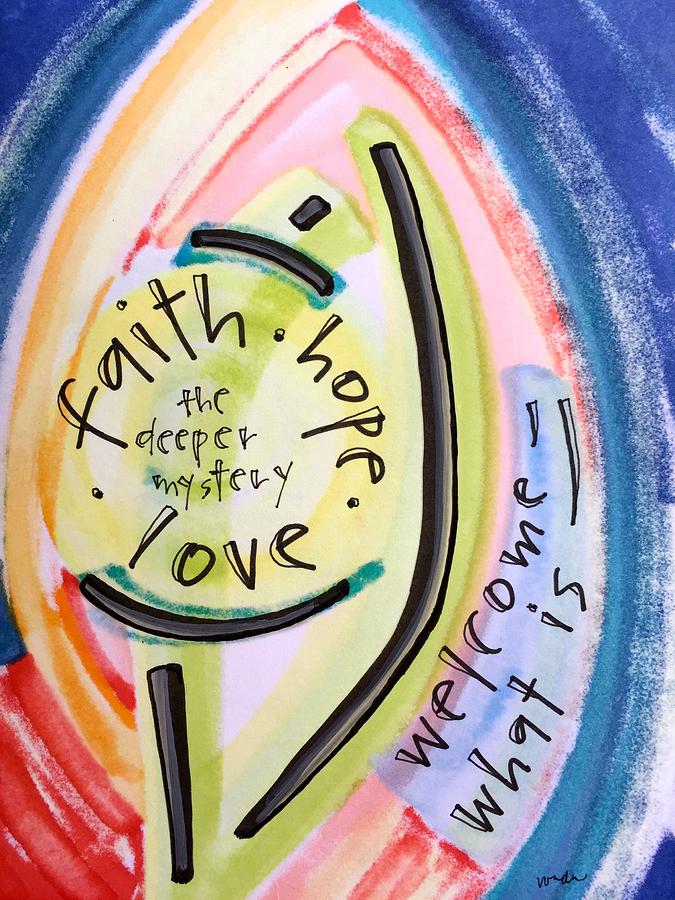 faith · hope ·
the
deeper
mystery
· love
welcome –
what is